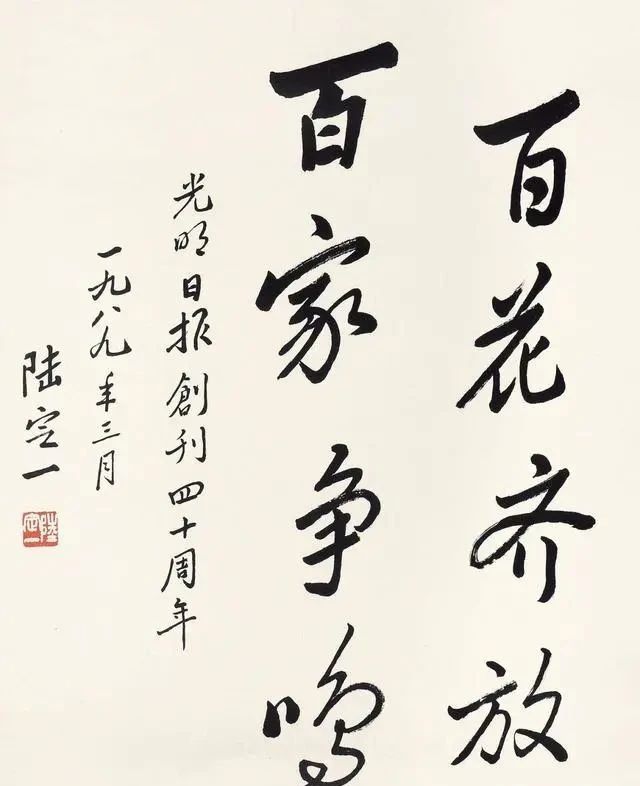 百花齐放
百家争鸣
光明日报創刊四十周年
一九八九年三月
陆定一
陸定一